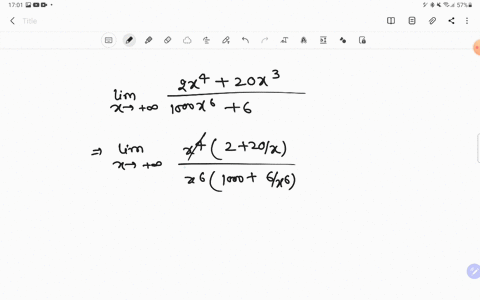 17:01 57%
Title
lim x→+∞ (2x⁴ + 20x³)/(1000x⁶ + 6)
⇒ lim x→+∞ x⁴(2+20/x)/x⁶(1000+ 6/x6)